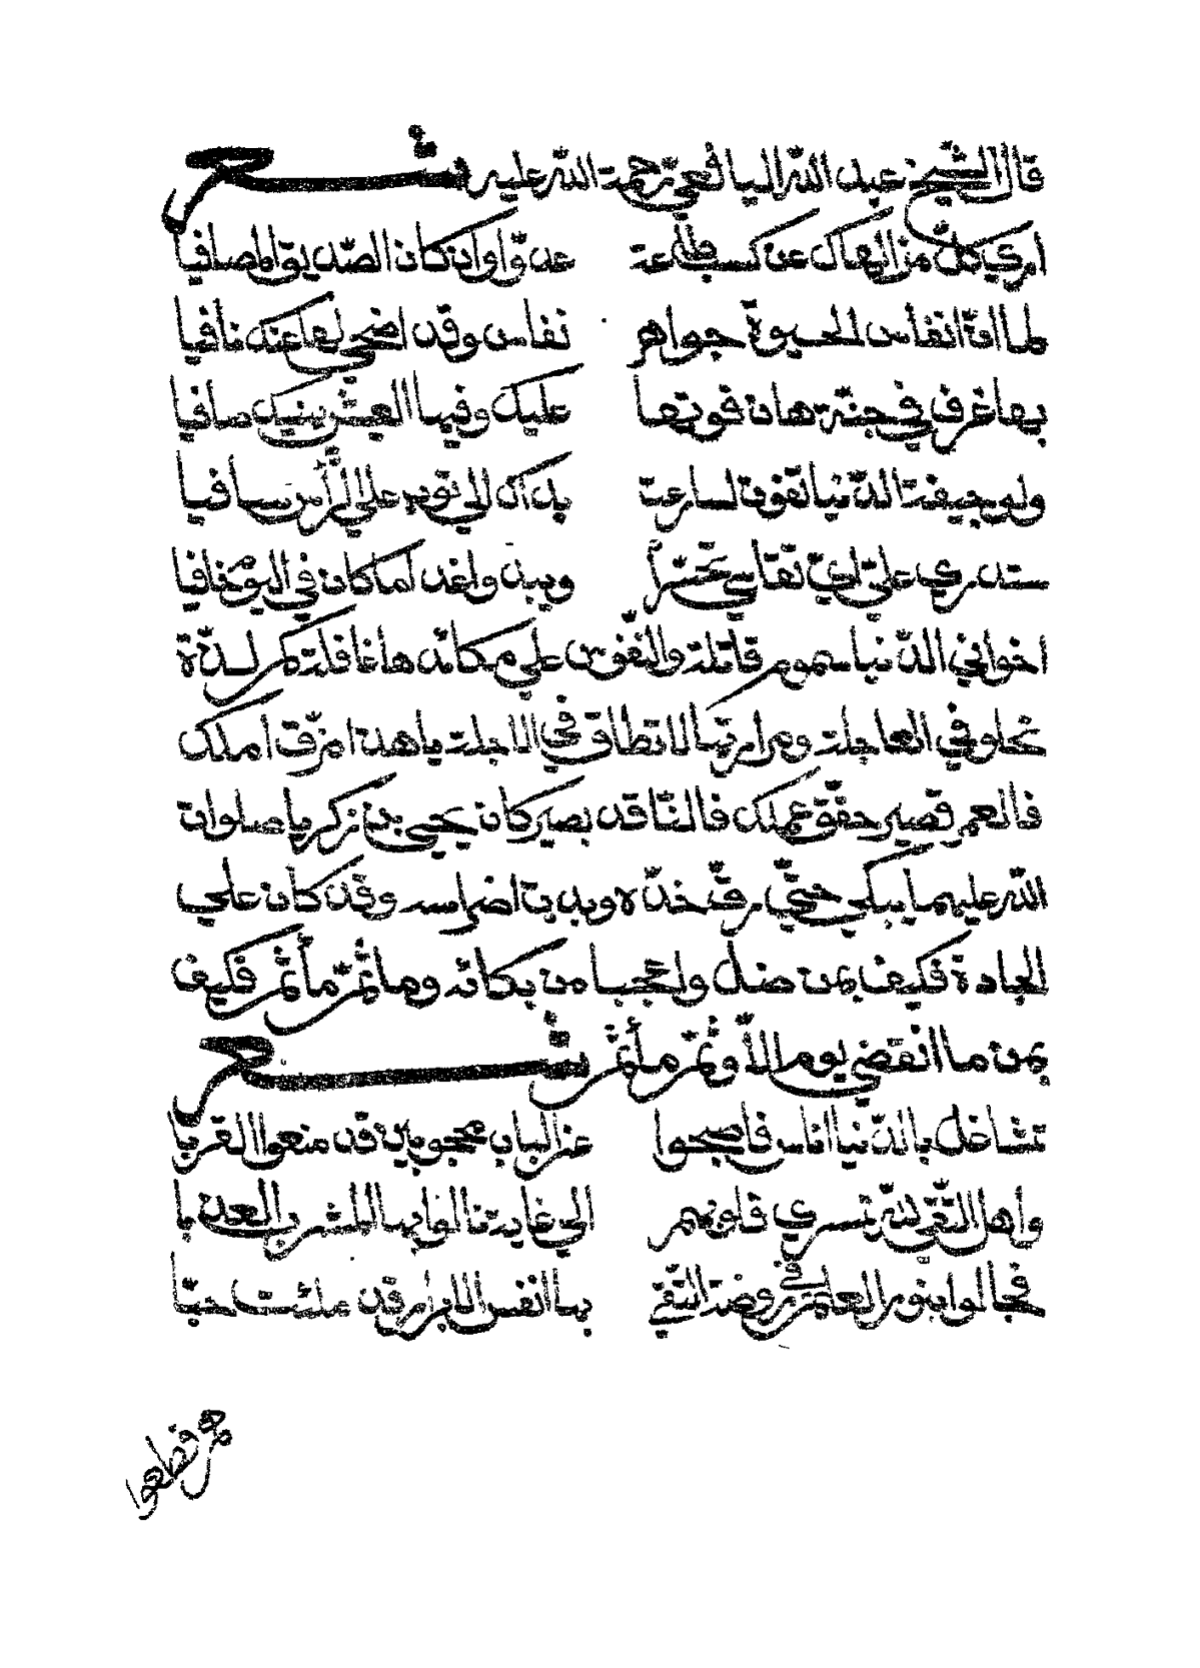 قال الشيخ عبد الله اليافعي رحمة الله عليه شعر
اري كل من الهاك عن كسب طاعة عدوّا وان كان الصّديق المصافيا
لما افاتا انفاس الحيوة جواهر نفاس وقد اضحي لها عنك نافيا
بها غرف في جنّة هان فوتها عليك وفيها العيش بنيك صافيا
ولو جيفة الدّنيا تفوت لساعة بدأن الي توب علي الرّأس سافيا
ستدري علي ايّ تقاسي تحسّرا ويبدوا غدا ما كان في اليوم خافيا
اخواني الدّنيا سموم قاتلة والنّفوس علي مكائدها غافلة كم لذّة
تحلو في العاجلة ومرارتها لا تطاق في الاجلة يا هذا مزّق املك
فالعمر قصير حقّق عملك فالنّاقد بصير كان يحيي بن زكريا صلوات
الله عليهما يبكي حتّي رقّ خدّه وبدت اضراسه وقد كان علي
الجادة فكيف بمن ضلّ واعجبا من بكائه وما ثمّ مأثم فكيف
بمن ما انقضي يوم الّا وثمّ مأثم شعر
تشاغل بالدّنيا اناس فاصبحوا عن الباب محجوبين قد منعوا القربا
واهل التّقي لله تسري قلوبهم الي غاية نالوا بها المشرب العذبا
فجالوا بنور العلم في روضة التّقي بها انفس الابرار قد ملئت حبّا
هم قطعوا